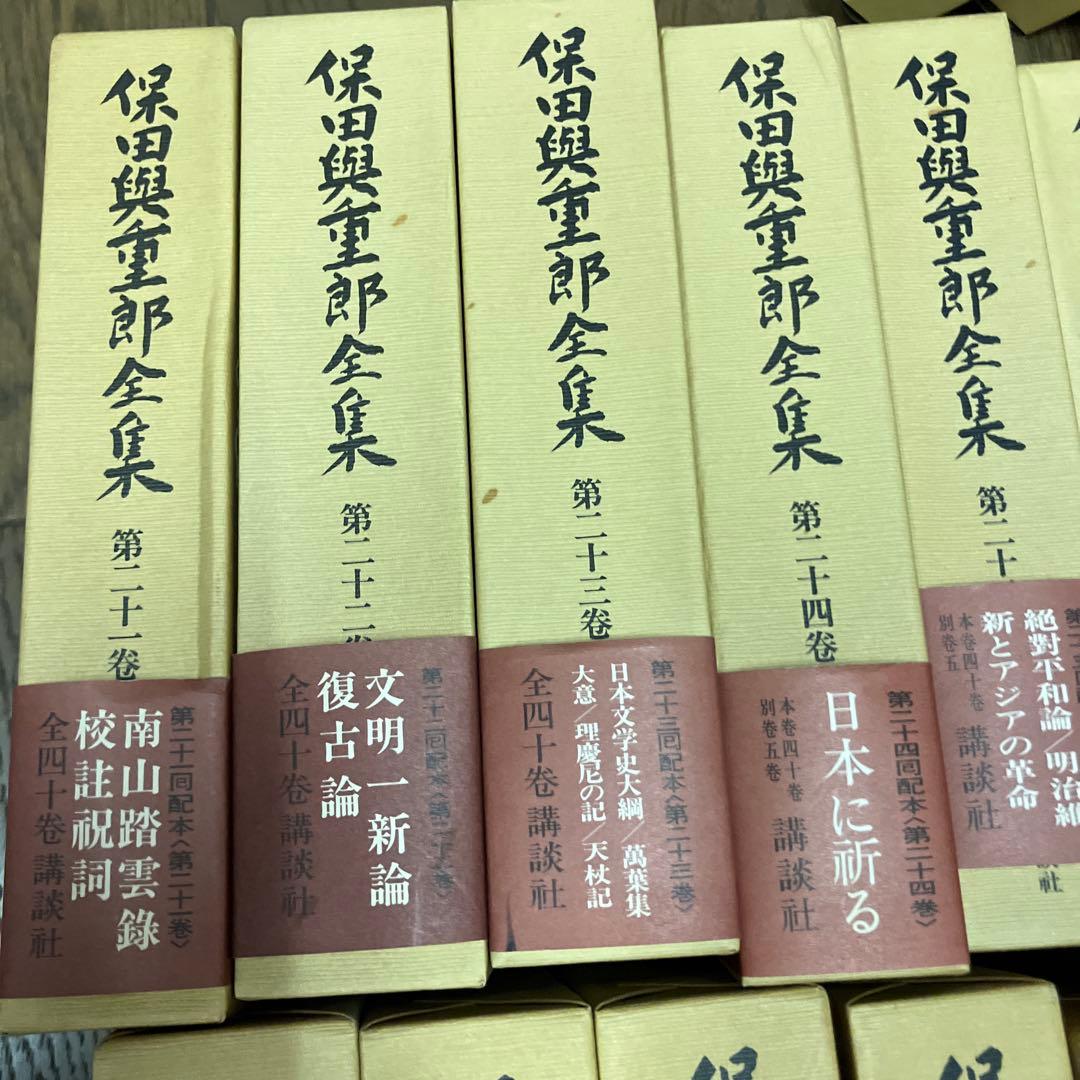 保田與重郎全集
第二十一卷
第二十一回配本〈第二十一巻〉
南山踏雲錄
校註祝詞
全四十卷 講談社
保田與重郎全集
第二十二卷
第二十二回配本〈第二十二巻〉
文明一新論
復古論
全四十卷 講談社
保田與重郎全集
第二十三卷
第二十三回配本〈第二十三巻〉
日本文学史大綱／萬葉集
大意／理慶尼の記／天杖記
全四十卷 講談社
保田與重郎全集
第二十四卷
第二十四回配本〈第二十四巻〉
日本に祈る
本卷四十卷
別卷五卷
講談社
保田與重郎全集
第二十
絕對平和論／明治維
新とアジアの革命
本卷四十卷
別卷五
講談社
談社
保
保